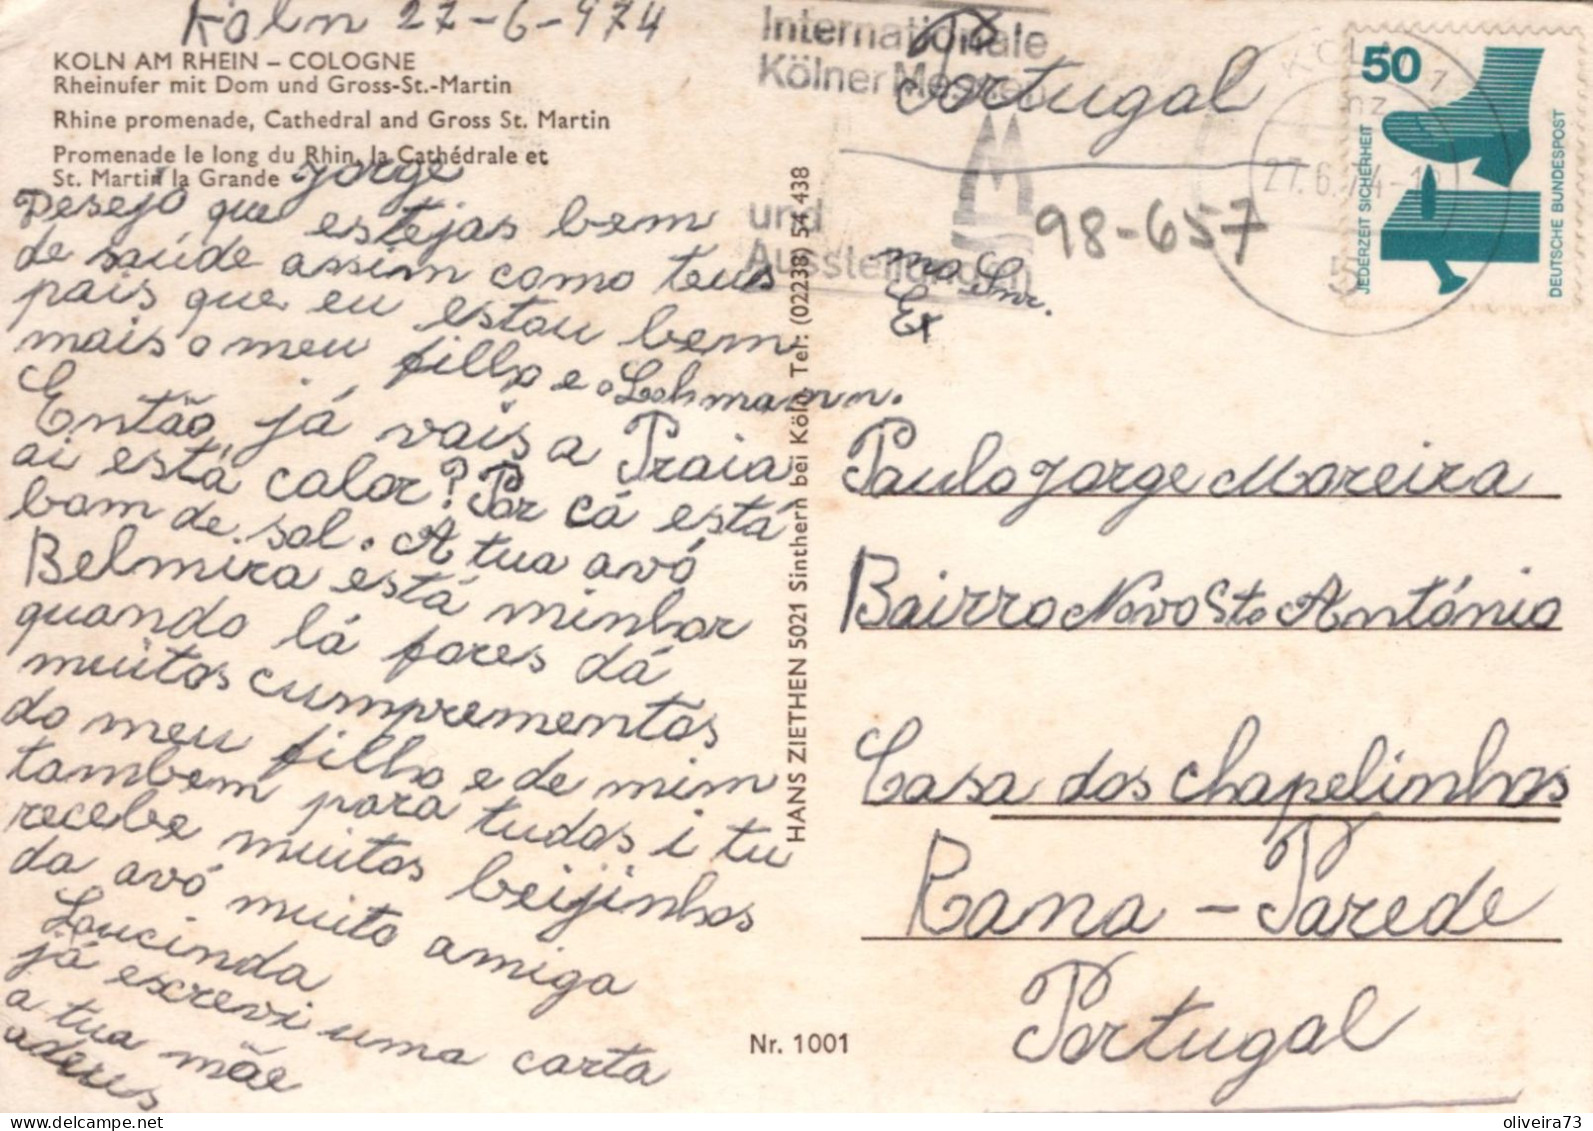 Köln 27-6-974
KOLN AM RHEIN – COLOGNE
Rheinufer mit Dom und Gross-St.-Martin
Rhine promenade, Cathedral and Gross St. Martin
Promenade le long du Rhin, la Cathédrale et
St. Martin la Grande
Jorge
Desejo que estejas bem
de saúde assim como teus
pais que eu estou bem
mais o meu filho e o Lehmann.
Então já vais a Praia
ai está calor? Por cá está
bom de sol. A tua avó
Belmira está minhor
quando lá fores dá
muitos cumprementos
do meu filho e de mim
tambem para tudos i tu
recebe muitos beijinhos
da avó muito amiga
Loucinda
já escrevi uma carta
a tua mãe
adeus
HANS ZIETHEN 5021 Sinthern bei Köln, Tel: (02238) 54 438
Nr. 1001
Internationale
Kölner Messen
und
Ausstellungen
Portugal
98-657
KÖLN 1
nz
27.6.74-1
5
50
JEDERZEIT SICHERHEIT
DEUTSCHE BUNDESPOST
mo Snr.
Ex
Paulo Jorge Moreira
Bairro Novo Sto António
Casa dos chapelinhos
Rana - Parede
Portugal
oliveira73